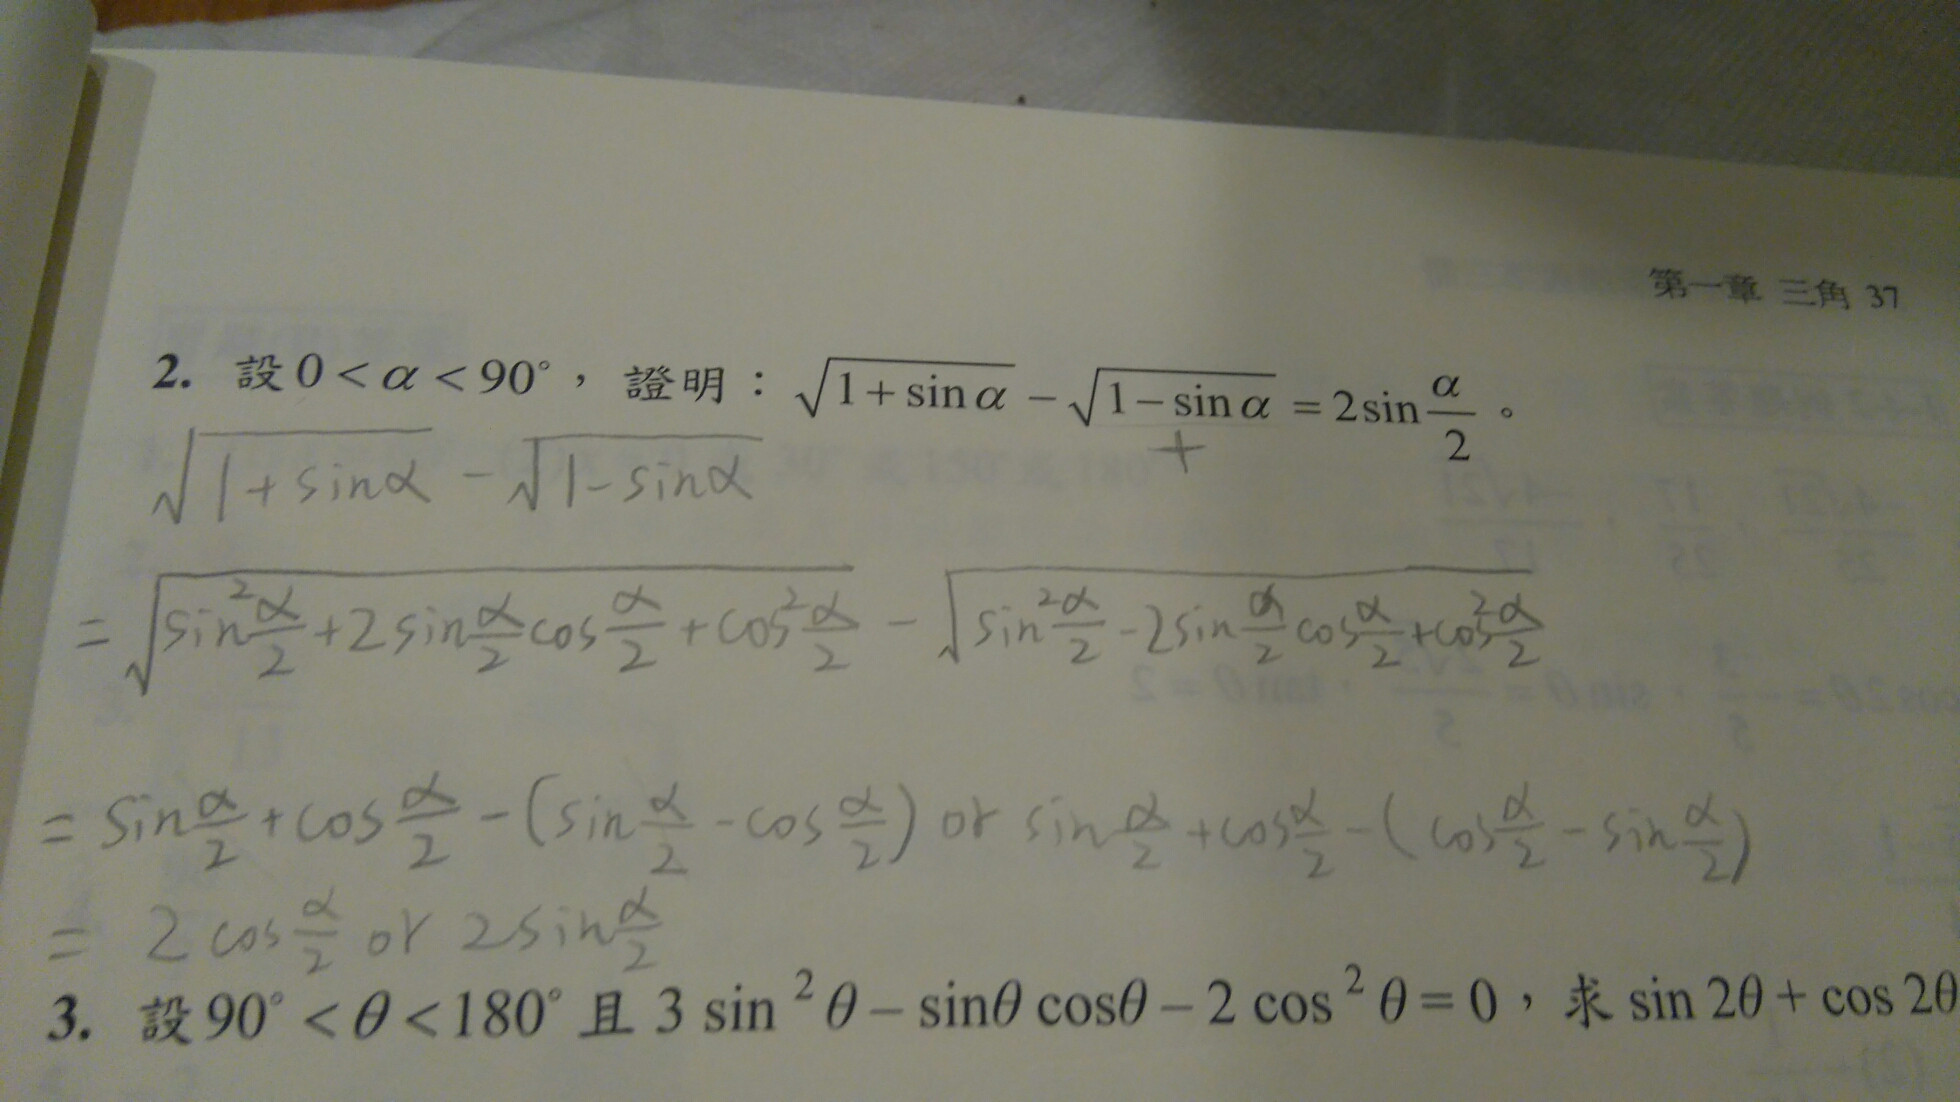 第一章 三角 37
2. 設 0 < α < 90°，證明：√(1 + sin α) − √(1 − sin α) = 2 sin α/2。
+
√(1 + sin α) − √(1 − sin α)
= √(sin² α/2 + 2 sin α/2 cos α/2 + cos² α/2) − √(sin² α/2 − 2 sin α/2 cos α/2 + cos² α/2)
= sin α/2 + cos α/2 − (sin α/2 − cos α/2) or sin α/2 + cos α/2 − (cos α/2 − sin α/2)
= 2 cos α/2 or 2 sin α/2
3. 設 90° < θ < 180° 且 3 sin² θ − sinθ cosθ − 2 cos² θ = 0，求 sin 2θ + cos 2θ